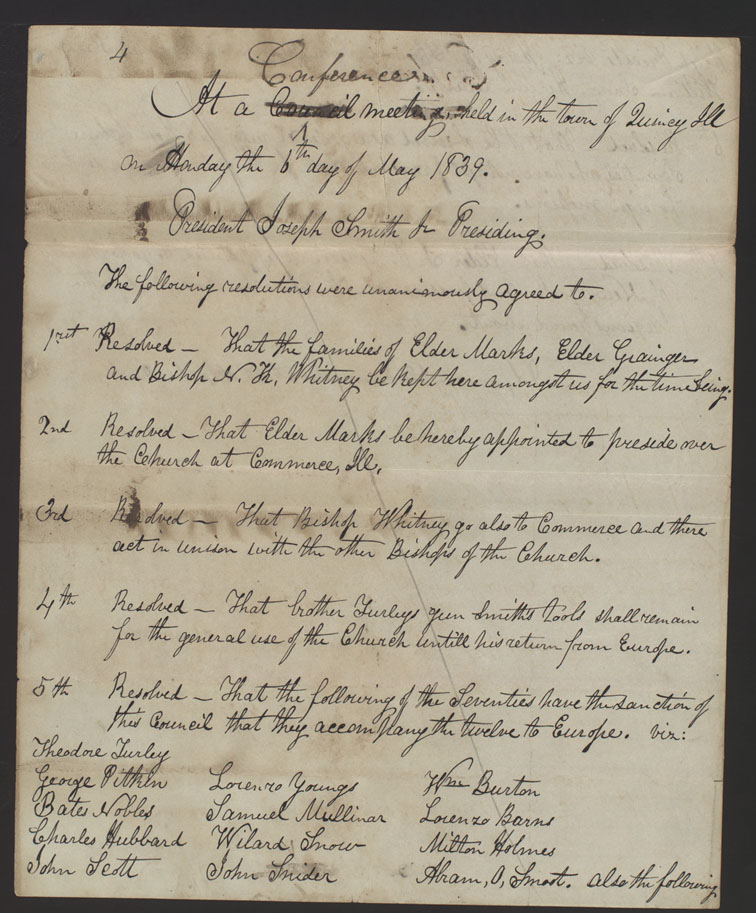 4
Conference
At a Council meeting, held in the town of Quincy Ill
on Monday the 6th day of May 1839.
President Joseph Smith Jr Presiding.
The following resolutions were unanimously agreed to.
1rst Resolved – That the families of Elder Marks, Elder Grainger
and Bishop N. K. Whitney be kept here amongst us for the time being.
2nd Resolved – That Elder Marks be hereby appointed to preside over
the Church at Commerce, Ill,
3rd Resolved – That Bishop Whitney go also to Commerce and there
act in unison with the other Bishops of the Church.
4th Resolved – That brother Turleys gun smiths tools shall remain
for the general use of the Church untill his return from Europe.
5th Resolved – That the following of the Seventies have the sanction of
this Council that they accompany the twelve to Europe. viz:
Theodore Turley
George Pitkin Lorenzo Youngs Wm Burton
Bates Nobles Samuel Mullinar Lorenzo Barns
Charles Hubbard Wilard Snow Milton Holmes
John Scott John Snider Abram, O, Smoot. also the following